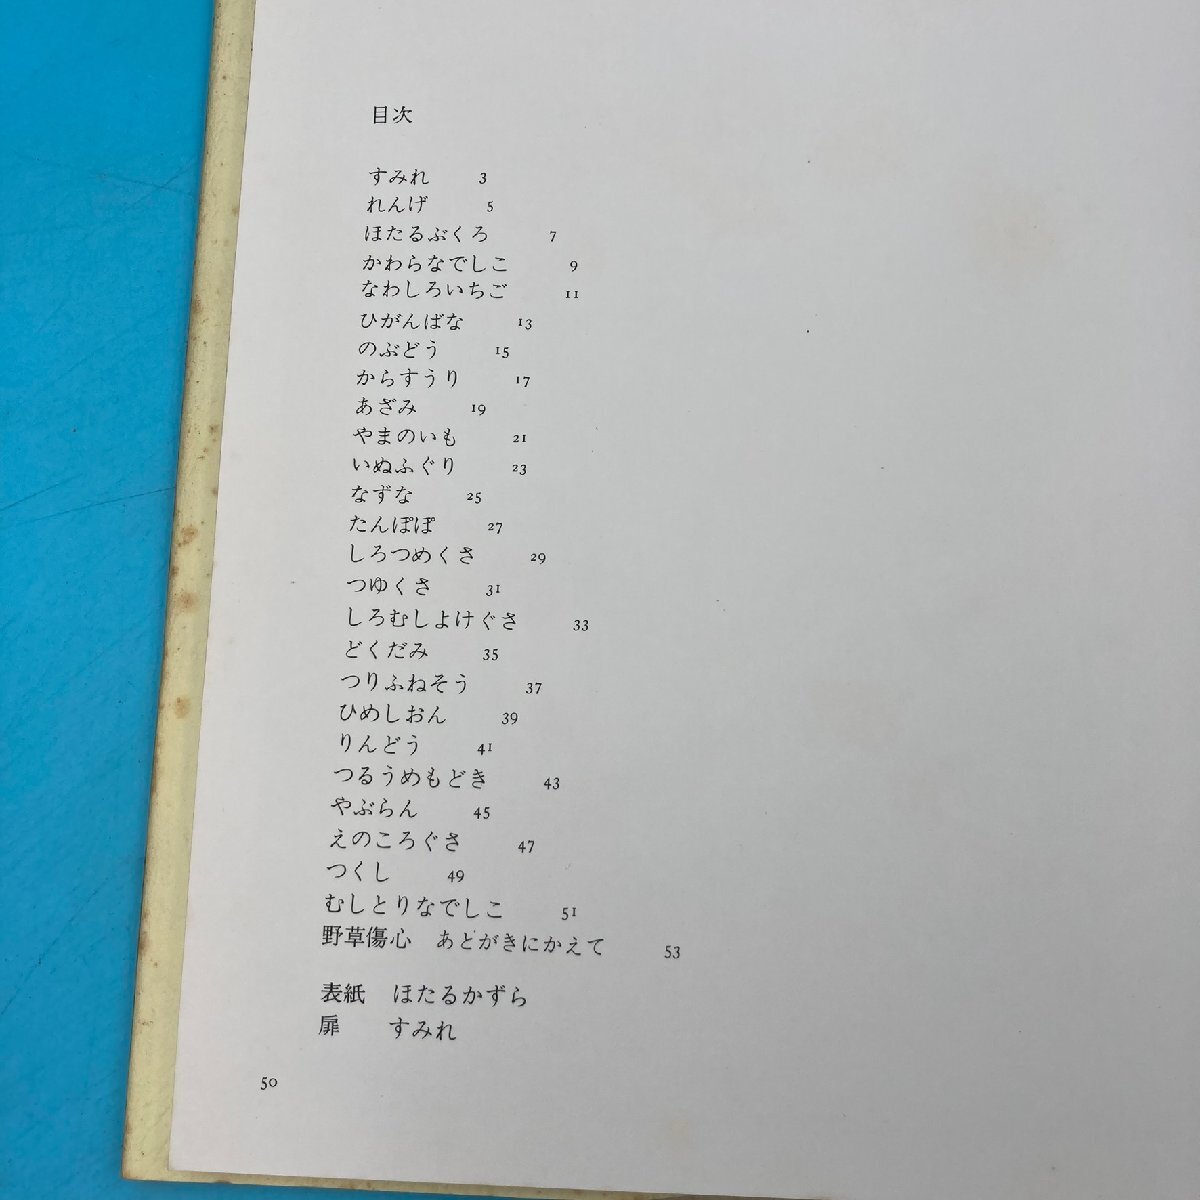 目次
すみれ 3
れんげ 5
ほたるぶくろ 7
かわらなでしこ 9
なわしろいちご 11
ひがんばな 13
のぶどう 15
からすうり 17
あざみ 19
やまのいも 21
いぬふぐり 23
なずな 25
たんぽぽ 27
しろつめくさ 29
つゆくさ 31
しろむしよけぐさ 33
どくだみ 35
つりふねそう 37
ひめしおん 39
りんどう 41
つるうめもどき 43
やぶらん 45
えのころぐさ 47
つくし 49
むしとりなでしこ 51
野草傷心 あとがきにかえて 53
表紙 ほたるかずら
扉 すみれ
50